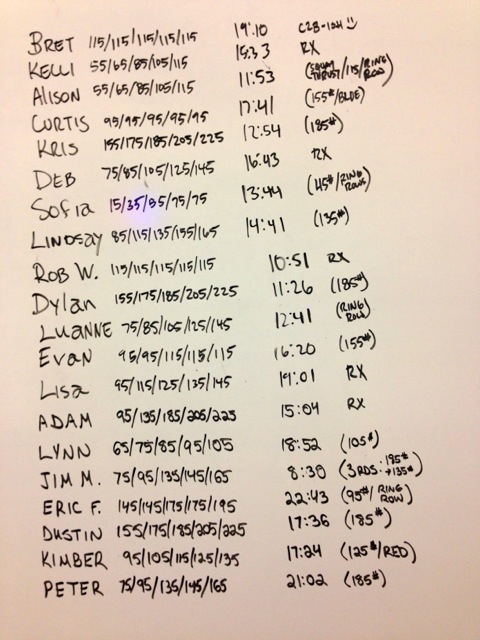 BRET 115/115/115/115/115 19:10
KELLI 55/65/85/105/115 15:33 RX
ALISON 55/65/85/105/115 11:53 (SQUAT THRUST/115/RING ROW)
CURTIS 95/95/95/95/95 17:41 (155#/BLUE)
KRIS 155/175/185/205/225 12:54 (185#)
DEB 75/85/105/125/145 16:43 RX
Sofia 15/35/55/75/75 13:44 (45#/RING ROWS)
LINDSAY 85/115/135/155/165 14:41 (135#)
ROB W. 115/115/115/115/115 10:51 RX
Dylan 155/175/185/205/225 11:26 (185#)
LUANNE 75/85/105/125/145 12:41 (RING ROW)
EVAN 95/95/115/115/115 16:20 (155#)
LISA 95/115/125/135/145 19:01 RX
ADAM 95/135/185/205/225 15:04 RX
LYNN 65/75/85/95/105 18:52 (105#)
JIM M. 75/95/135/145/165 8:30 (3RDS: 185# →135#)
ERIC F. 145/145/175/175/195 22:43 (95#/RING ROW)
DUSTIN 155/175/185/205/225 17:36 (185#)
KIMBER 95/105/115/125/135 17:24 (125#/RED)
PETER 75/95/135/145/165 21:02 (185#)